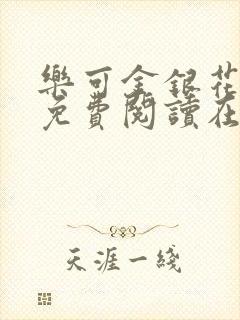 樂可金銀花
免費閱讀在
天涯一綫